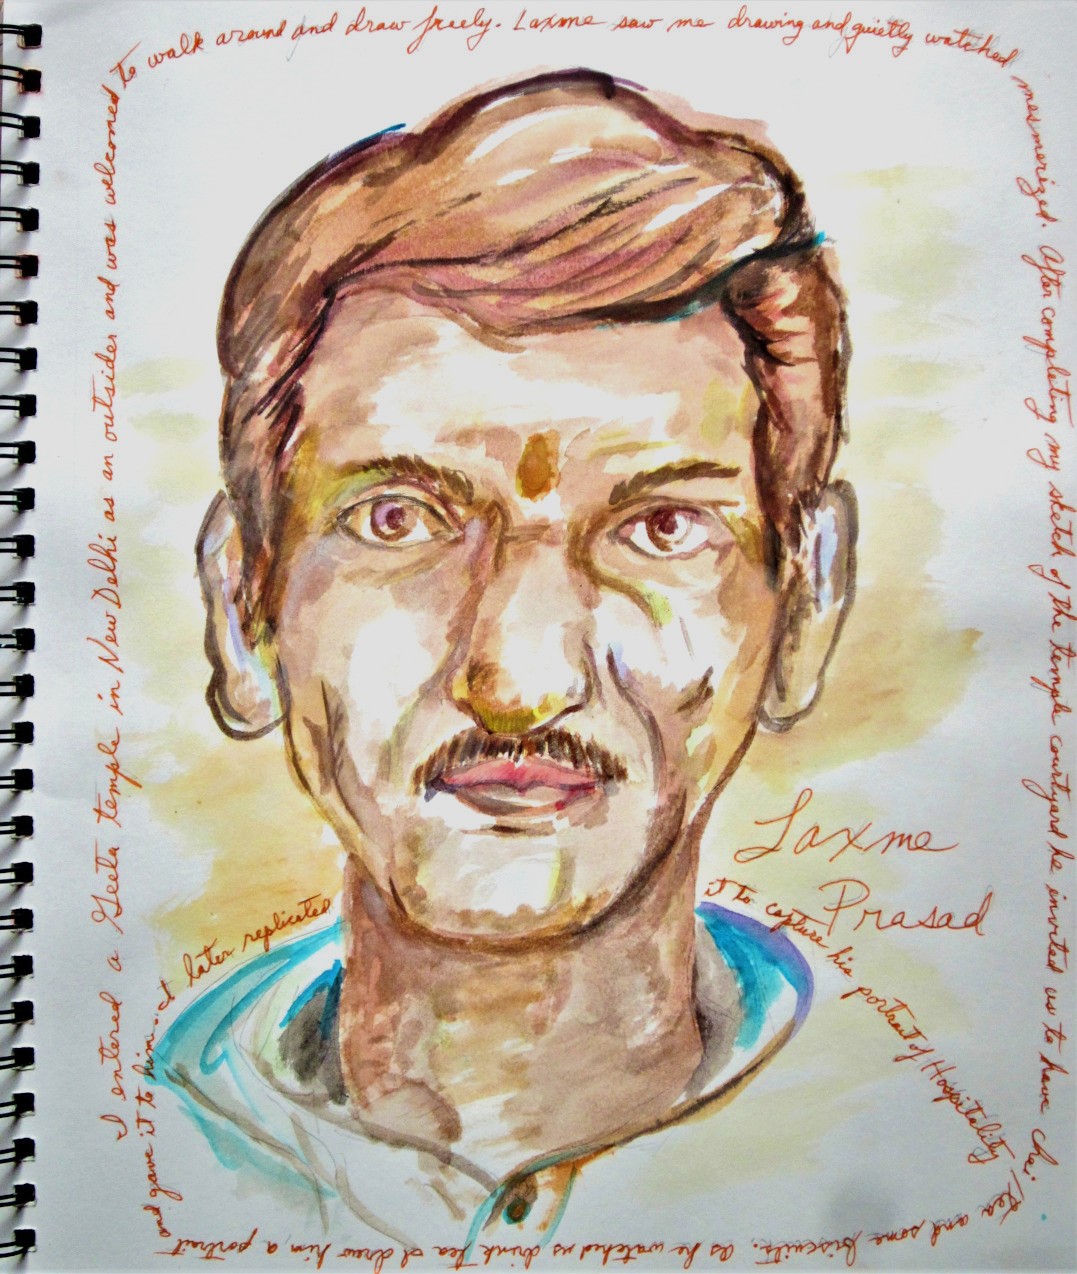 I entered a Geeta temple in New Delhi as an outsider and was welcomed
to walk around and draw freely. Laxme saw me drawing and quietly watched
mesmerized. After completing my sketch of the temple courtyard he invited us to have chai
tea and some biscuits. As he watched us drink tea I drew him a portrait
and gave it to him and later replicated
it to capture his portrait of Hospitality
Laxme
Prasad